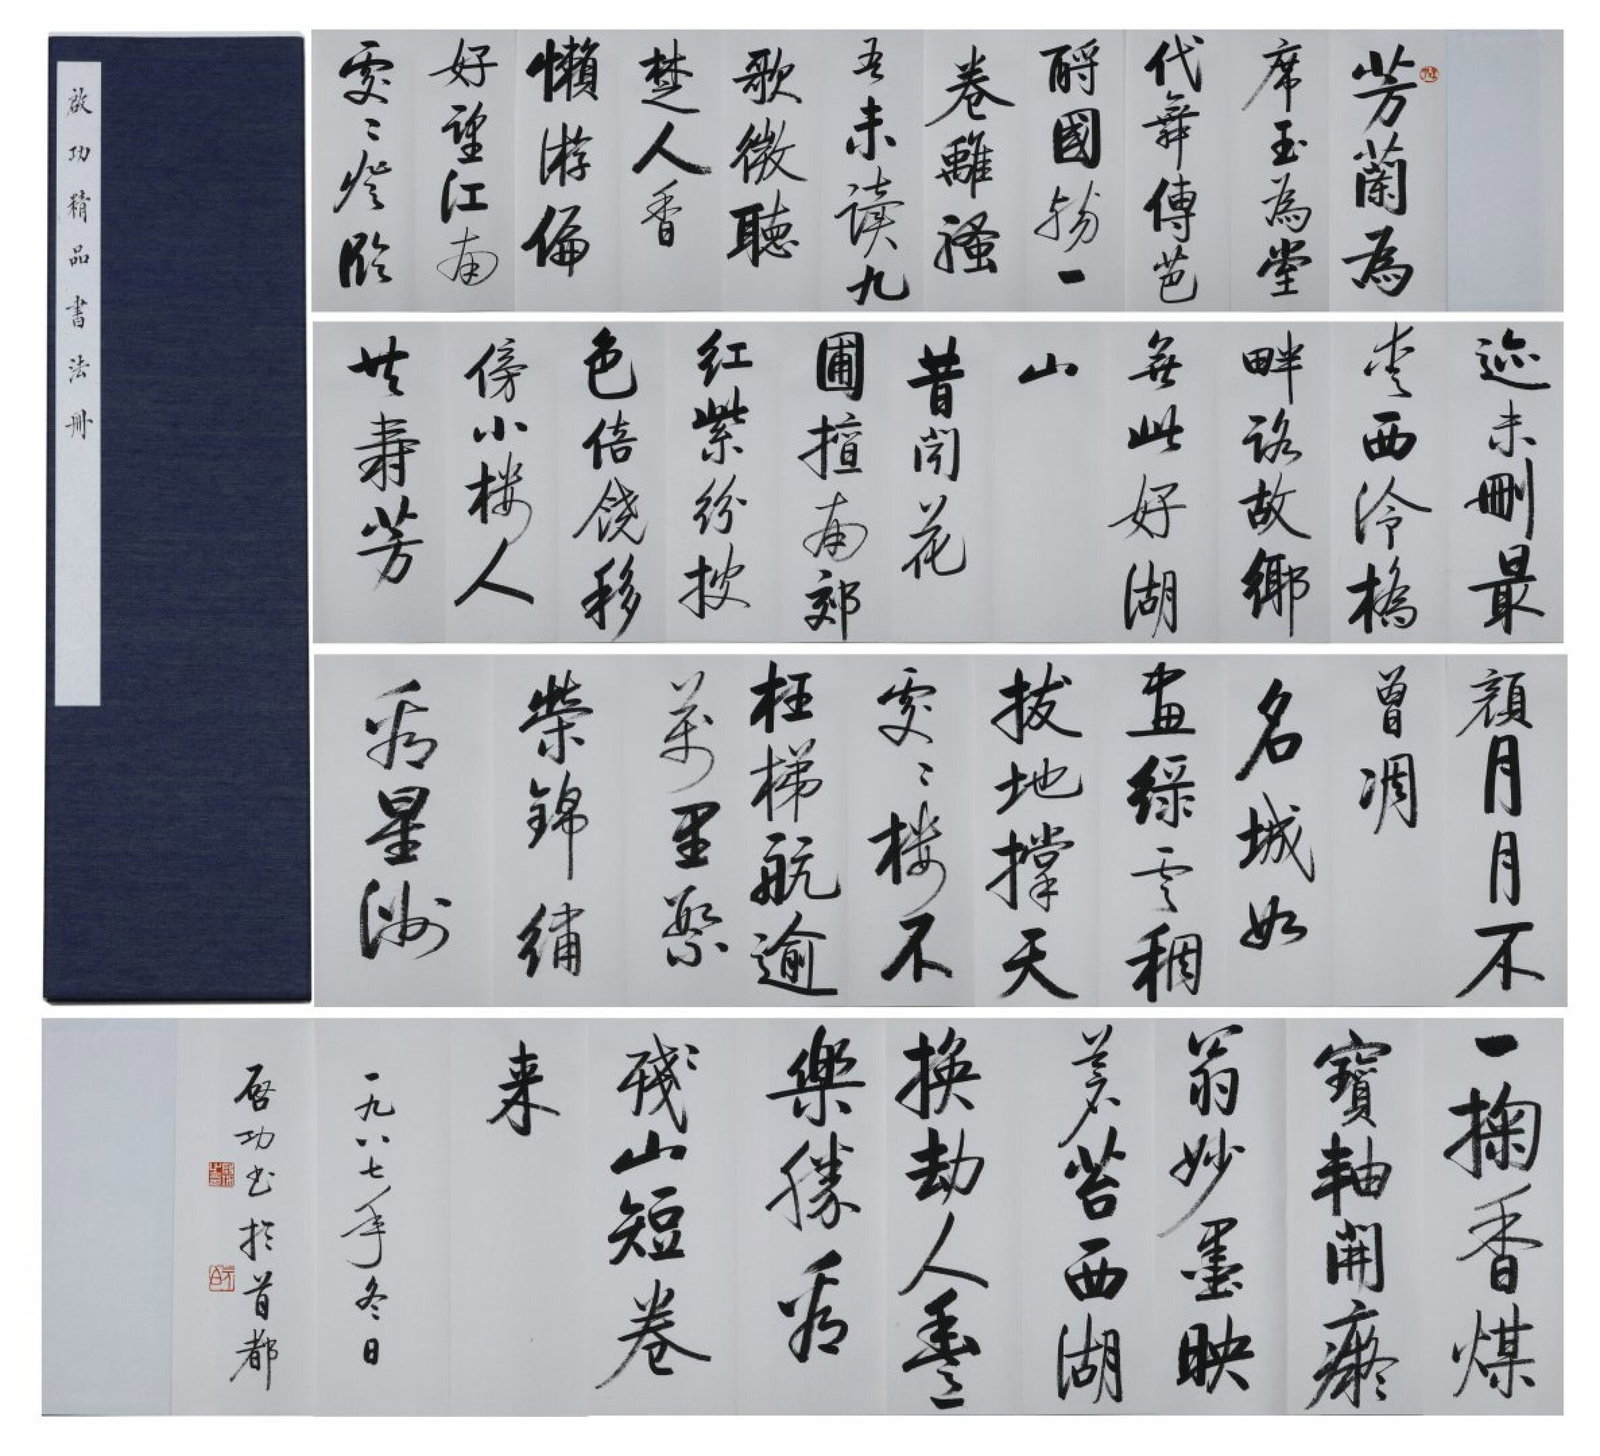 啟功精品書法冊
芳蘭為
席玉為堂
代舞傳芭
酹國殤一
卷離騷
吾未讀九
歌微聽
楚人香
懶游偏
好望江南
處〻燈臨
迹未刪最
愛西泠橋
畔路故鄉
無此好湖
山
昔聞花
圃擅南郊
紅紫紛披
色倍饒移
傍小樓人
共壽芳
顏月月不
曾凋
名城如
畫綠雲稠
拔地撐天
處〻樓不
枉梯航逾
萬里繁
榮錦繡
看星洲
一掬香煤
寶軸開癡
翁妙墨映
蒼苔西湖
換劫人
樂勝看
殘山短卷
來
一九八七年冬日
啓功書於首都